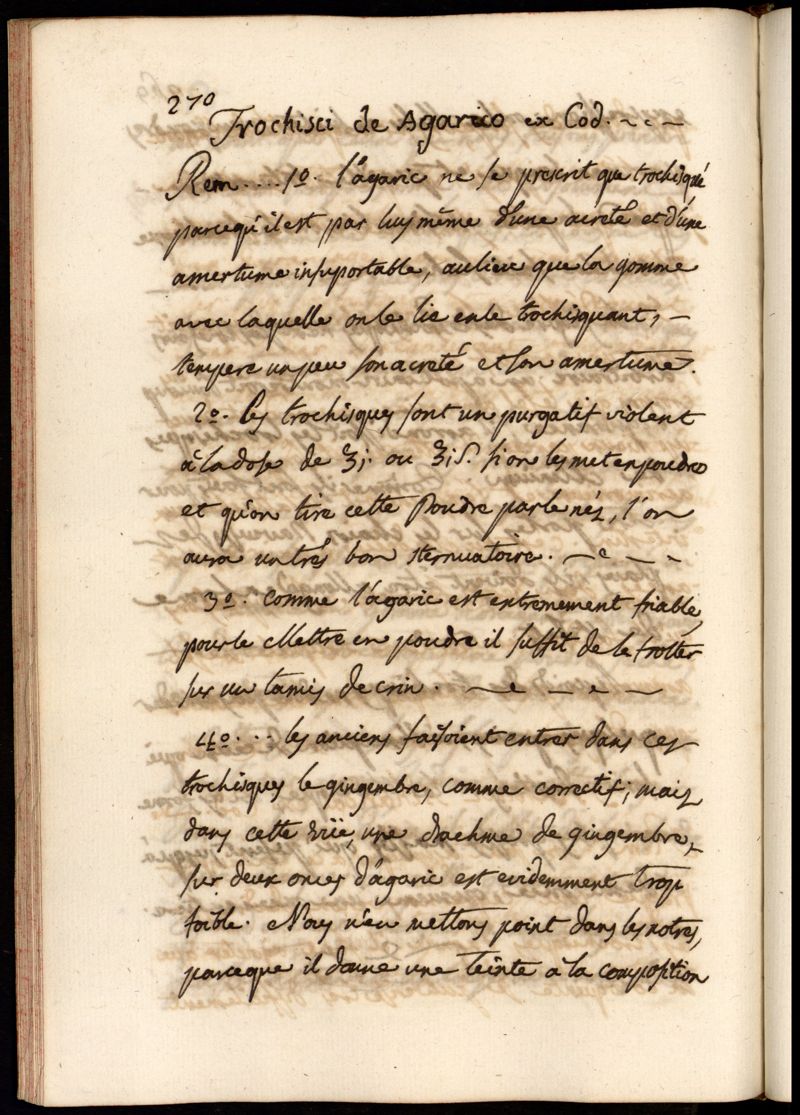 270
Trochisci de Agarico ex Cod. ~ ~ ~
Rem.... 1º. l'agaric ne se prescrit que trochisqué
parcequ'il est par luy même d'une acreté et d'une
amertume insuportable, aulieu que la gomme
avec laquelle on le lie en le trochisquant, ~
tempere un peu son acreté et son amertume.
2º. Ces trochisques sont un purgatif violent
à la dose de ʒj. ou ʒjß. si on les met en poudre
et qu'on tire cette Poudre par le néz, l'on
aura un trés bon sternuatoire. ~ ~ ~ ~
3º. comme l'agaric est extremement friable,
pour le Mettre en poudre il suffit de le frotter
sur un tamis de crin. ~ ~ ~ ~ ~
4º... les anciens faisoient entrer dans ces
trochisques le gingembre, comme correctif; mais
dans cette vüe, une drachme de gingembre,
sur deux onces d'agaric est evidemment trop
foible. Nous n'en mettons point dans les notres,
parceque il donne une teinte à la composition